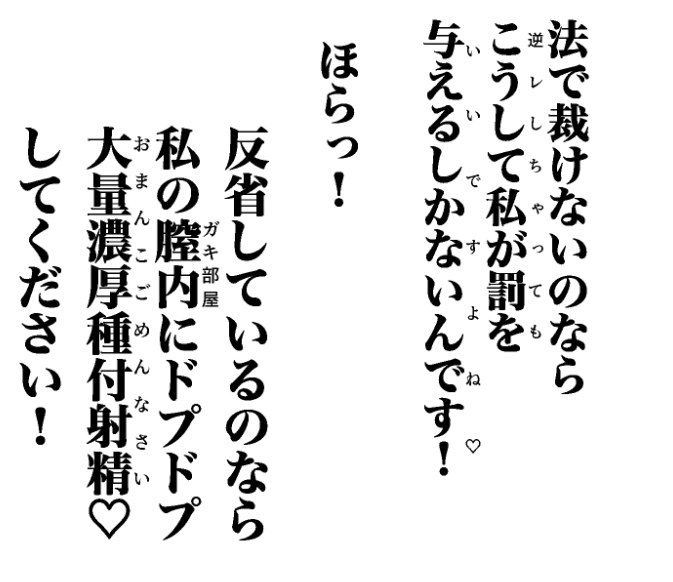 法で裁けないのなら
逆レしちゃっても
こうして私が罰を
いいですよね♡
与えるしかないんです！
ほらっ！
反省しているのなら
ガキ部屋
私の膣内にドプドプ
おまんこごめんなさい
大量濃厚種付射精♡
してください！